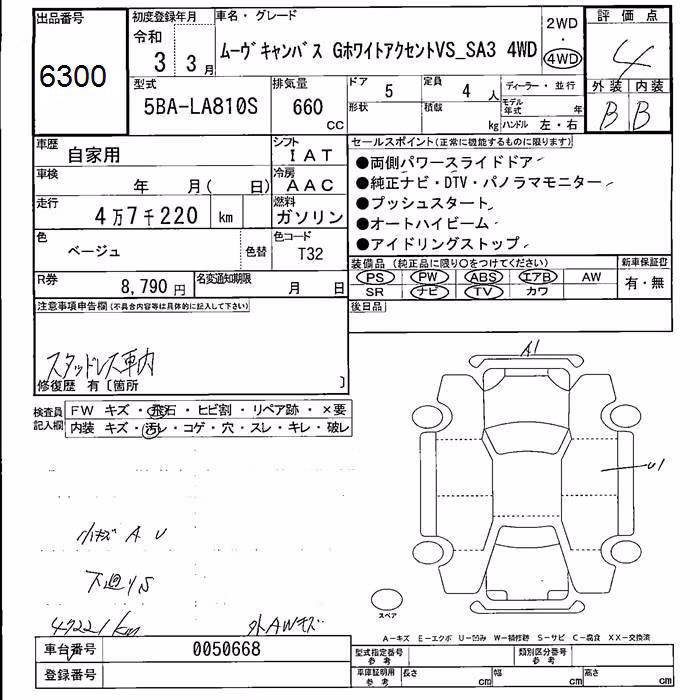 出品番号
6300
初度登録年月
令和
3 3月
車名・グレード
ムーヴキャンバス GホワイトアクセントVS_SA3 4WD
2WD
・
4WD
評価点
4
外装 内装
B B
型式
5BA-LA810S
排気量
660
CC
ドア
5
定員
4人
形状
積載
kg
ディーラー・並行
モデル年式
年
ハンドル 左・右
車歴
自家用
シフト
IAT
車検
年 月( 日)
冷房
AAC
走行
4万7千220 km
燃料
ガソリン
色
ベージュ
色替
色コード
T32
R券
8,790円
名変通知期限
月 日
セールスポイント(正常に機能するものに限ります)
●両側パワースライドドア
●純正ナビ・DTV・パノラマモニター
●プッシュスタート
●オートハイビーム
●アイドリングストップ
装備品 (純正品に限り○をつけてください)
PS PW ABS エアB AW
SR ナビ TV カワ
新車保証書
有・無
後日品
注意事項申告欄(不具合内容等は具体的に記入して下さい)
スタッドレス車内
修復歴 有〔箇所 〕
検査員記入欄
FW キズ・飛石・ヒビ割・リペア跡・×要
内装 キズ・汚レ・コゲ・穴・スレ・キレ・破レ
小キズ A U
下廻りS
47221km
外AWキズ
A1
U1
スペア
A-キズ E-エクボ U-凹み W-補修跡 S-サビ C-腐食 XX-交換済
車台番号
0050668
登録番号
型式指定番号
参考
類別区分番号
参考
車庫証明用
参考
長さ cm
幅 cm
高さ cm